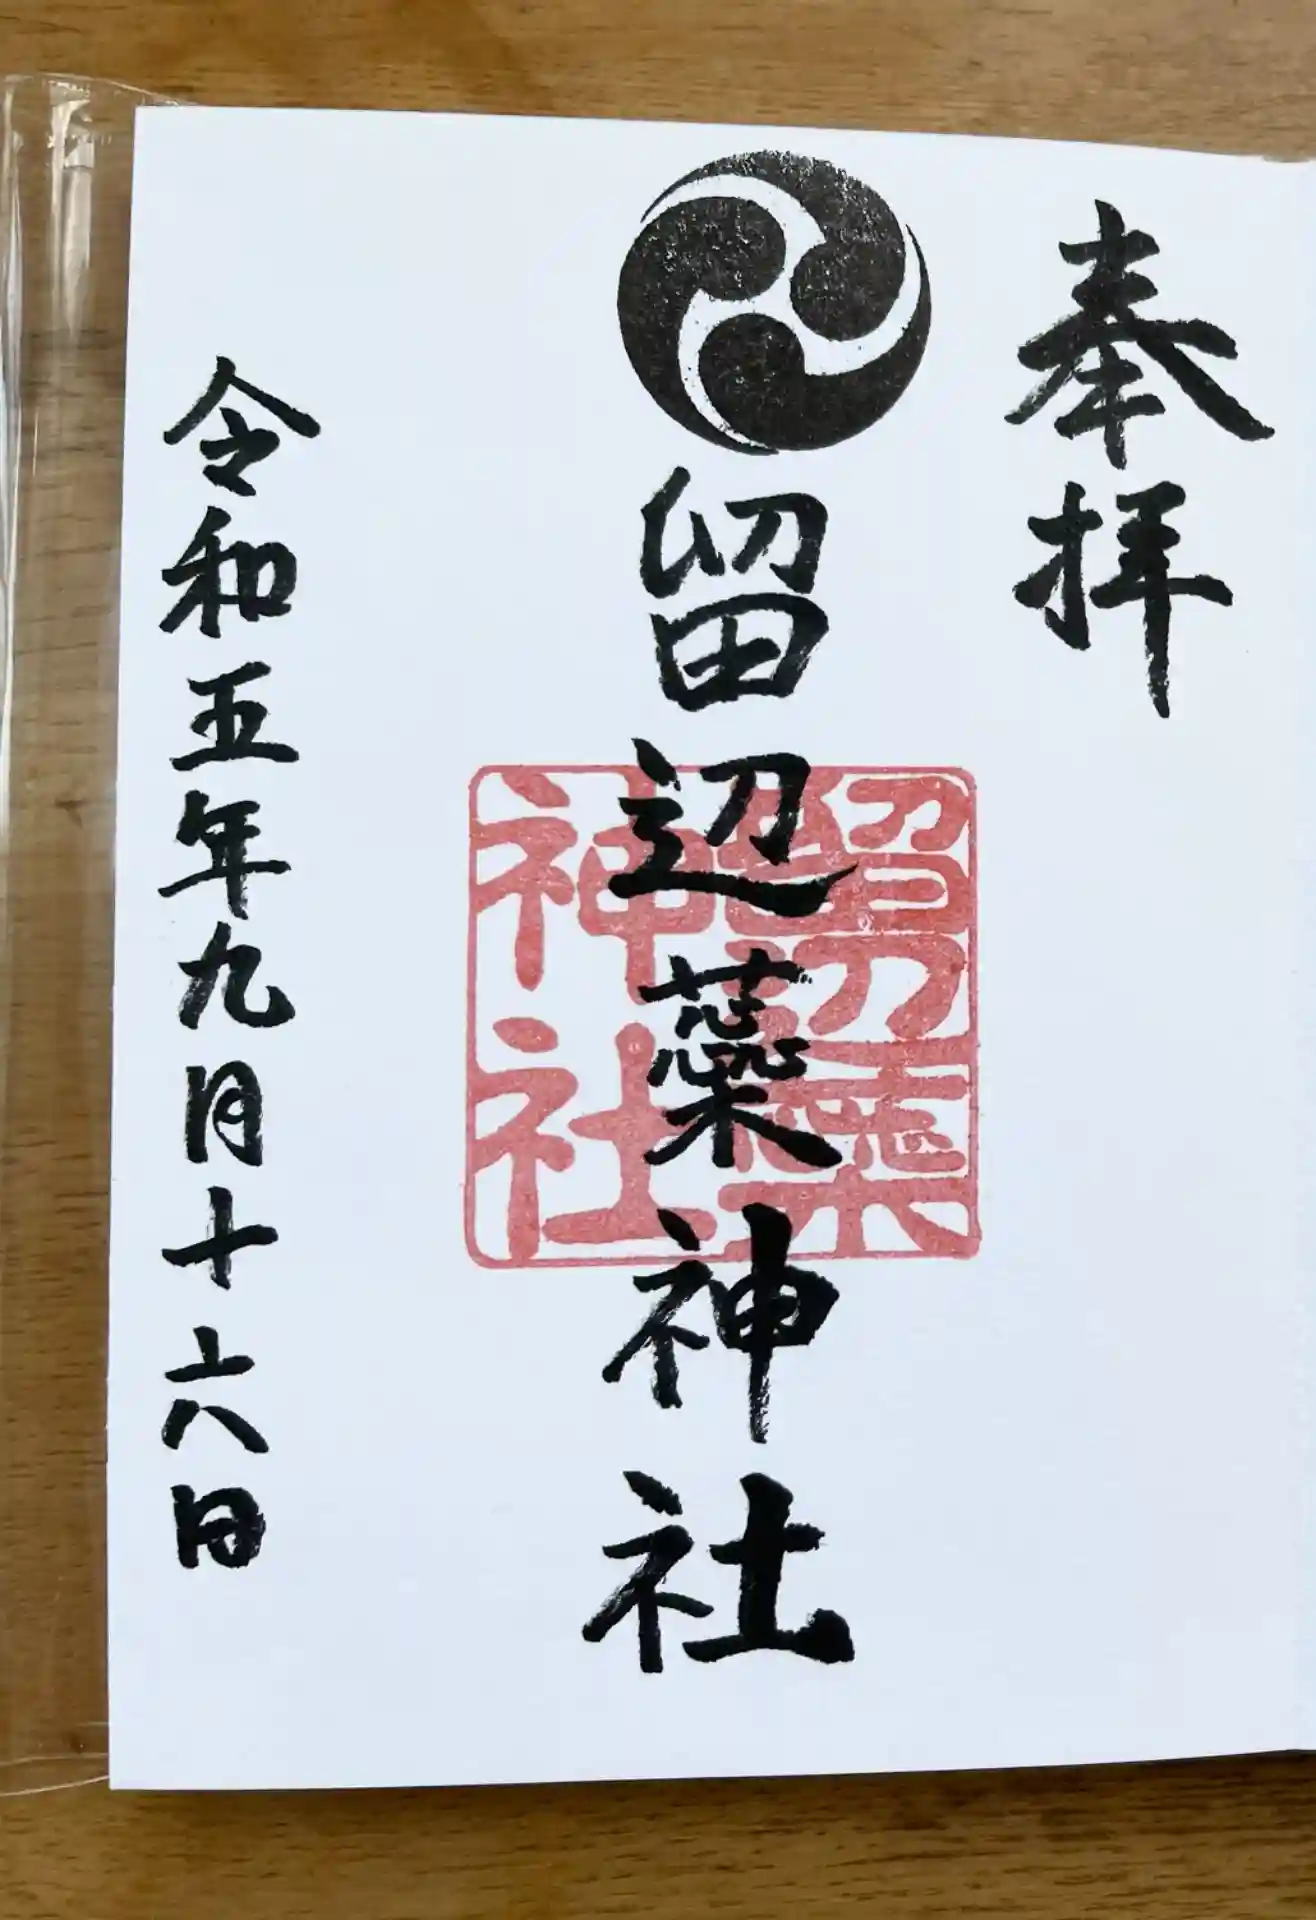 奉拝
留辺蘂神社
留辺蘂
神社
令和五年九月十六日